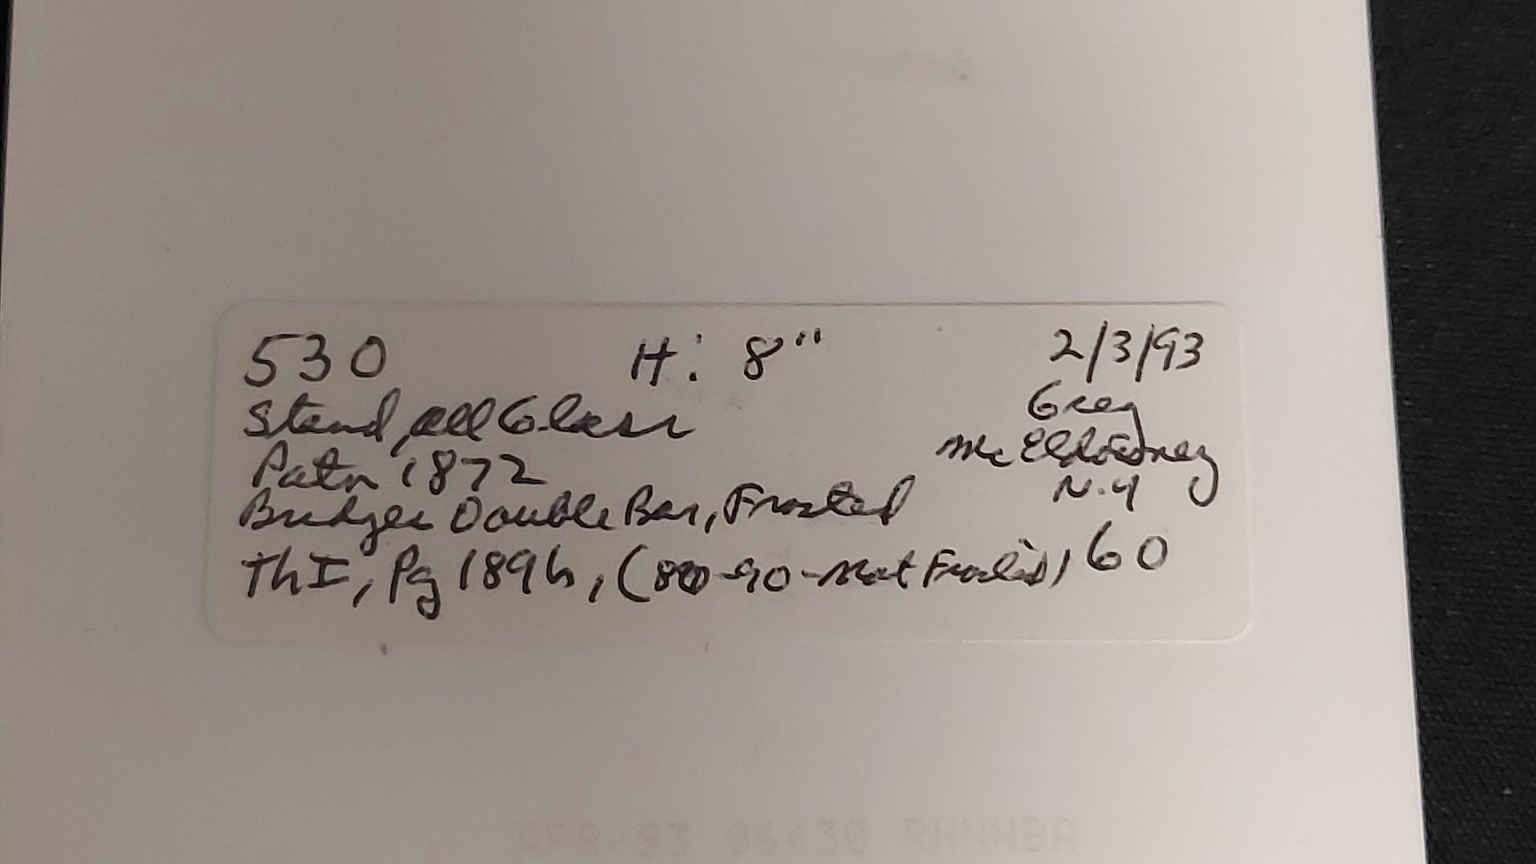 530 H: 8" 2/3/93
Stand, all Glass Greg
Patn 1872 McEldowney
Bridges Double Bar, Frosted N.Y
Th I, Pg 189 h, (80-90-Not Frosted) 60